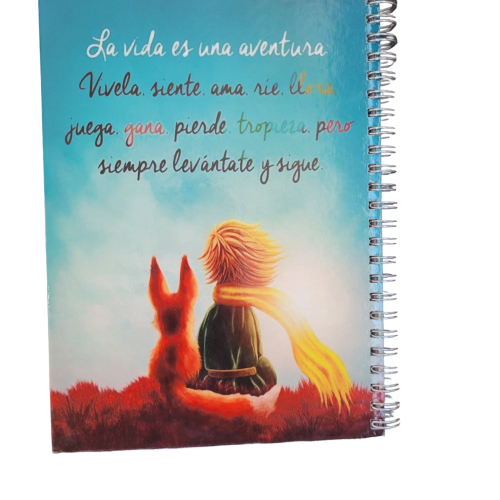 La vida es una aventura
Vívela, siente, ama, ríe, llora,
juega, gana, pierde, tropieza, pero
siempre levántate y sigue.